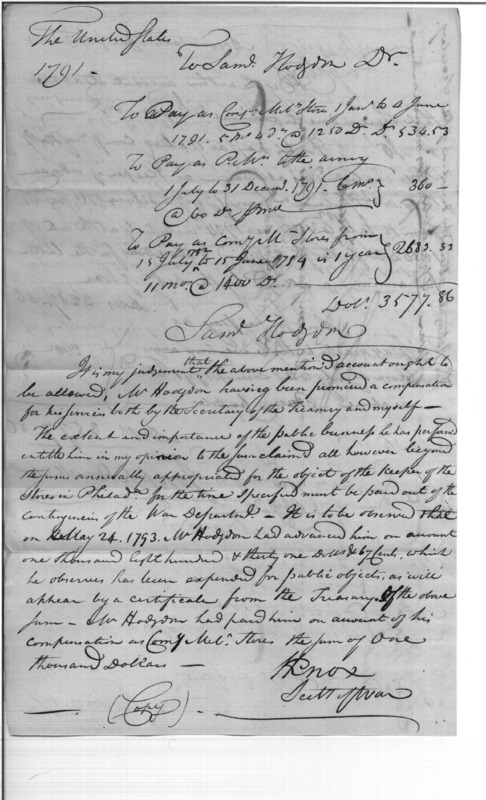 The United States
1791 - To Saml. Hodgdon Dr.
To Pay as Comy Mily Stores 1 Jany to 4 June
1791. 5 Mo 4 dys @ 1250 Ds Ds 534.53
To Pay as Qr. Mr. to the army
1 July to 31 Decemr. 1791. 6 mos } 360 -
@ 60 Ds
To Pay as Comy My Stores from
15 July 1792 to 15 June 1794 is 1 year } 2683.33
11 mos @ 1400 Ds.
Dols. 3577.86
Saml. Hodgdon
It is my judgement that the above mention'd account ought to
be allowed, Mr Hodgdon having been promised a compensation
for his services both by the Secretary of the Treasury and myself -
The extent and importance of the public business he has performed
entitle him in my opinion to the sum claimed all however beyond
the sums annually appropriated for the object of the Keeper of the
Stores in Philada. for the time specified must be paid out of the
contingencies of the War Departmt. - It is to be observed that
on the May 24. 1793. Mr Hodgdon had advanced him on account
one thousand eight hundred & thirty one Dolls & 67 Cents, which
he observes has been expended for public objects, as will
appear by a certificate from the Treasury. Of the above
sum - Mr Hodgdon had paid him on account of his
compensation as Comy Mily. Stores the sum of One
thousand Dollars -
HKnox
Secty of War
(Copy)